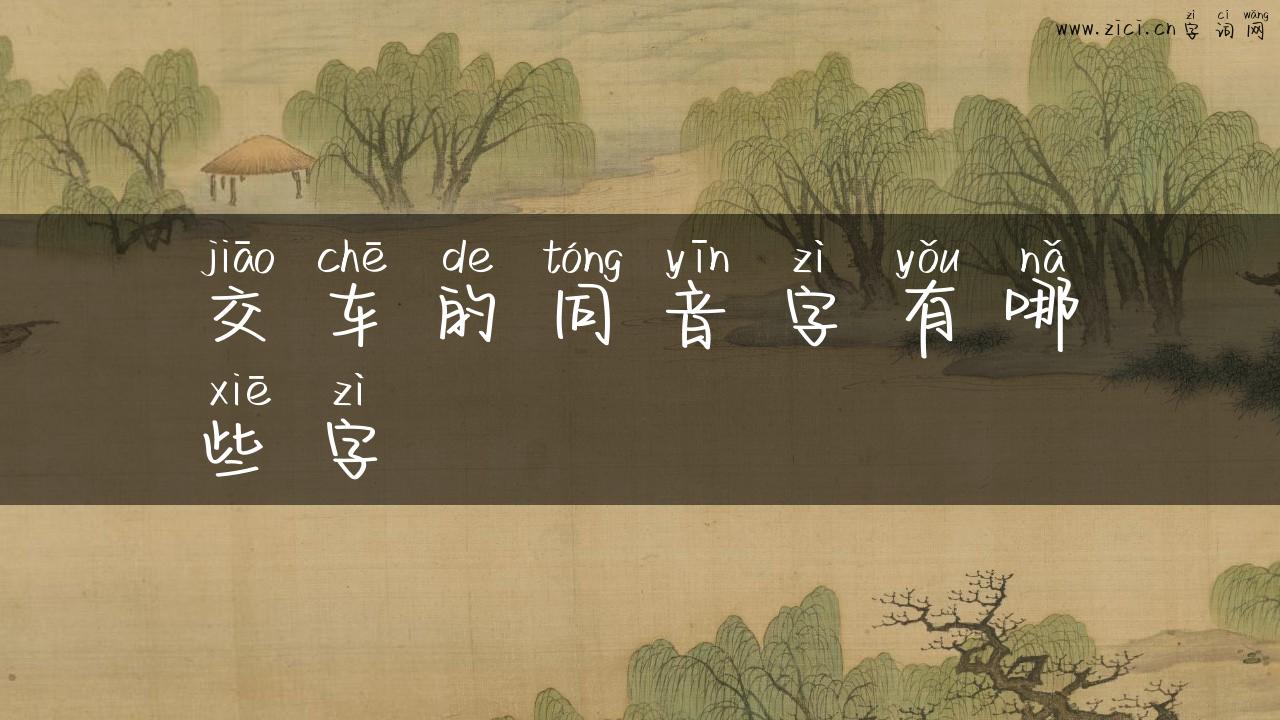 zì cí wǎng
www.zici.cn 字词网
jiāo chē de tóng yīn zì yǒu nǎ
交车的同音字有哪
xiē zì
些字